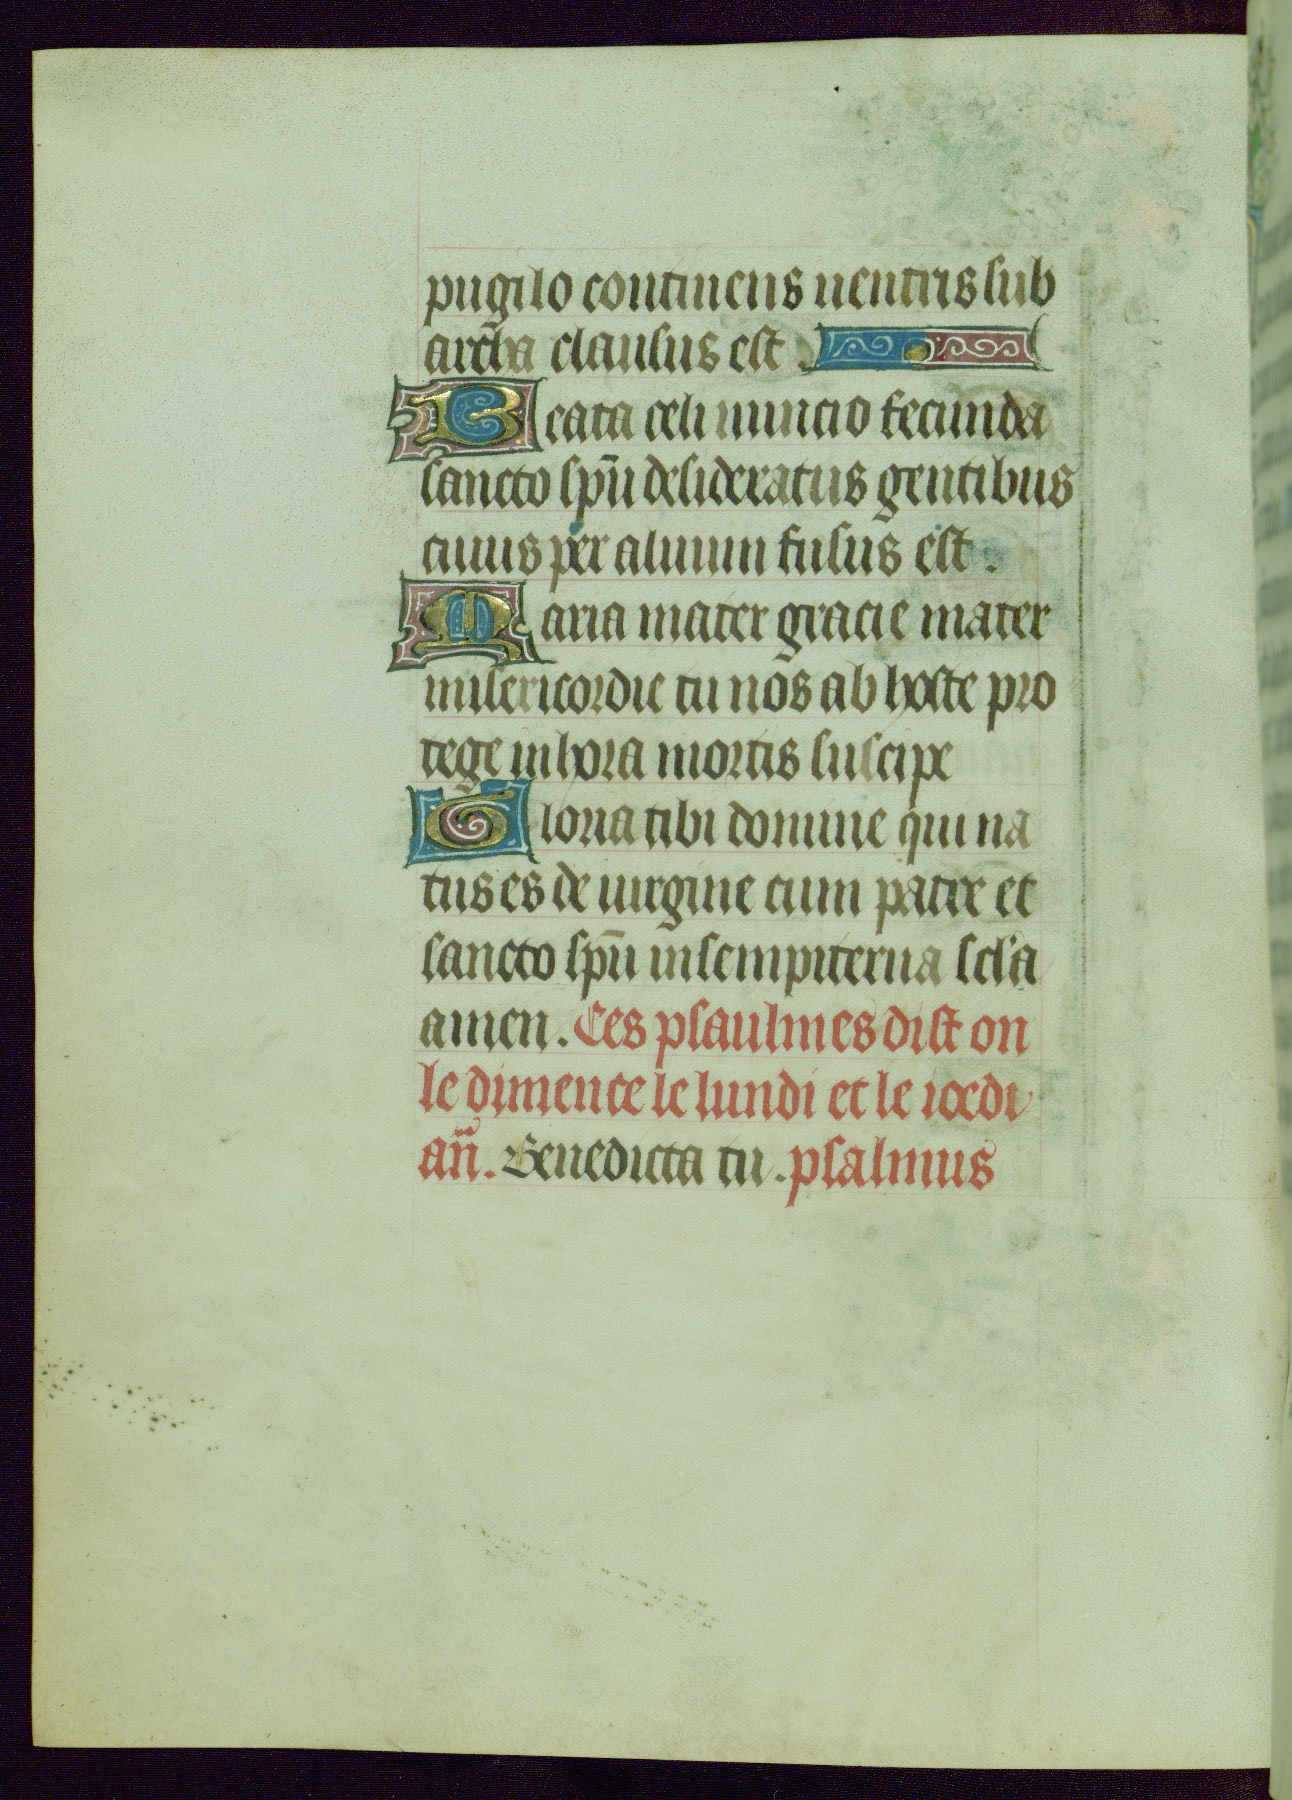 pugilo continens uentris sub
archa clausus est.
Beata celi nuncio fecunda
sancto sp̄u desideratus gentibus
cuius per aluum fusus est.
Maria mater gracie mater
misericordie tu nos ab hoste pro
tege in hora mortis suscipe
Gloria tibi domine qui na
tus es de uirgine cum patre et
sancto sp̄u in sempiterna scl'a
amen. Ces psaulmes dist on
le dimence le lundi et le ioedi
an̄. Benedicta tu. psalmus